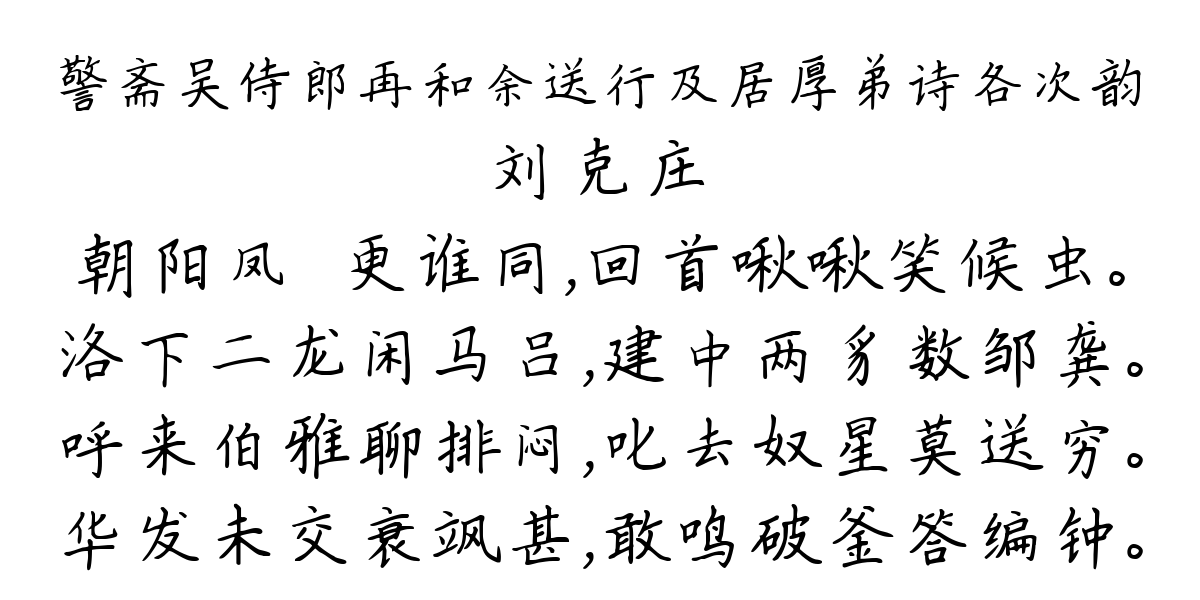 警斋吴侍郎再和余送行及居厚弟诗各次韵
刘克庄
朝阳凤 更谁同,回首啾啾笑候虫。
洛下二龙闲马吕,建中两豸数邹龚。
呼来伯雅聊排闷,叱去奴星莫送穷。
华发未交衰飒甚,敢鸣破釜答编钟。